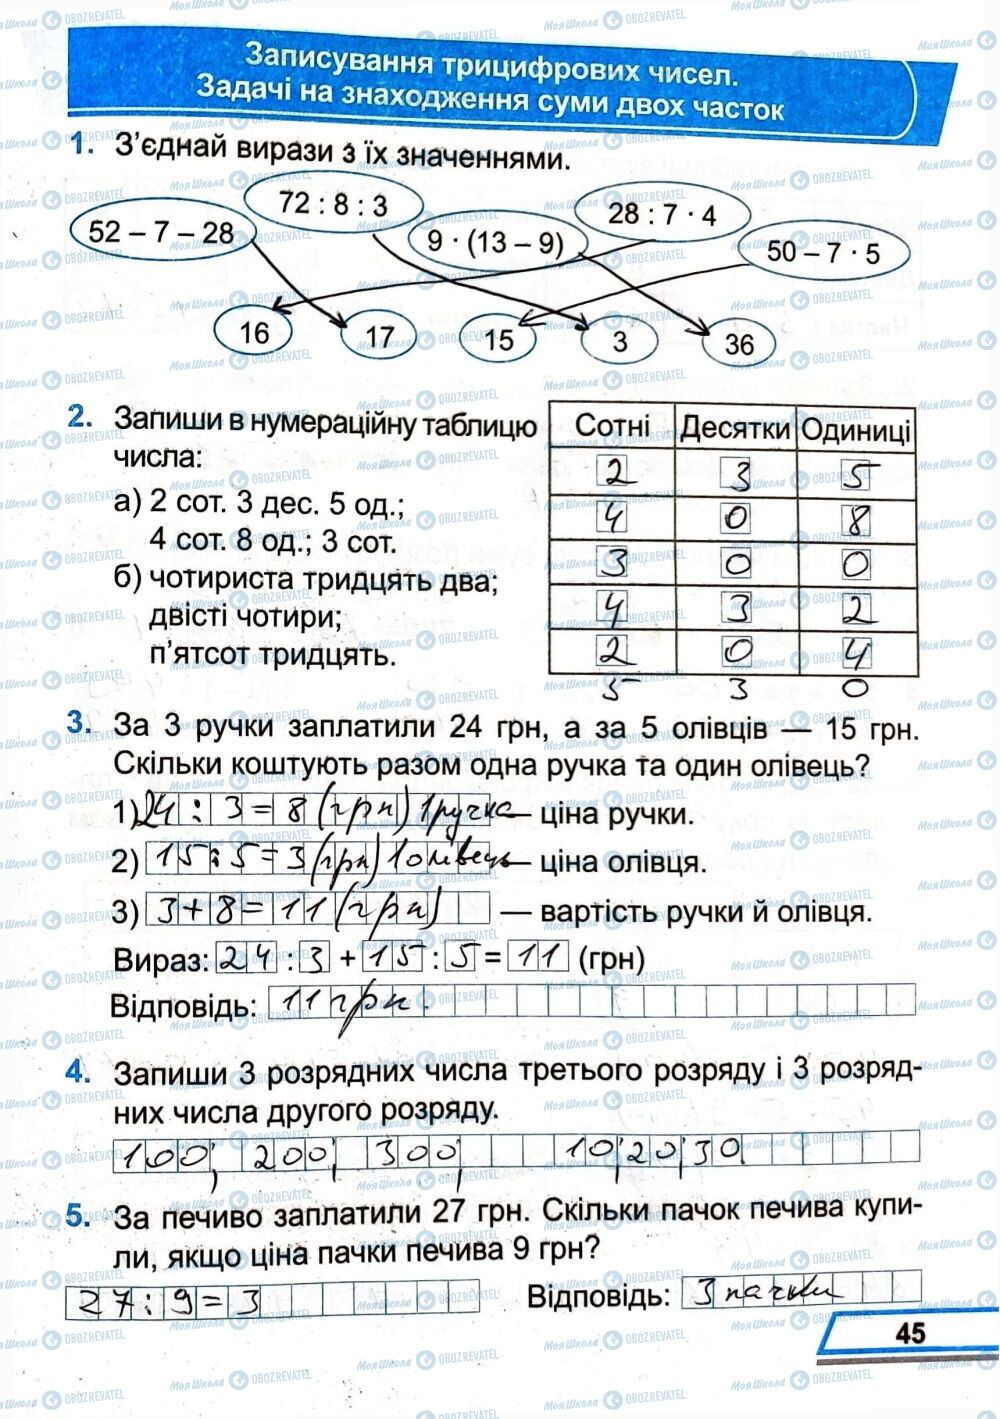 Записування трицифрових чисел.
Задачі на знаходження суми двох часток
1. З’єднай вирази з їх значеннями.
52 – 7 – 28
72 : 8 : 3
9 · (13 – 9)
28 : 7 · 4
50 – 7 · 5
16
17
15
3
36
2. Запиши в нумераційну таблицю
числа:
а) 2 сот. 3 дес. 5 од.;
4 сот. 8 од.; 3 сот.
б) чотириста тридцять два;
двісті чотири;
п’ятсот тридцять.
Сотні Десятки Одиниці
2 3 5
4 0 8
3 0 0
4 3 2
2 0 4
5 3 0
3. За 3 ручки заплатили 24 грн, а за 5 олівців — 15 грн.
Скільки коштують разом одна ручка та один олівець?
1) 24 : 3 = 8 (грн) 1 ручка — ціна ручки.
2) 15 : 5 = 3 (грн) 1 олівець — ціна олівця.
3) 3 + 8 = 11 (грн) — вартість ручки й олівця.
Вираз: 24 : 3 + 15 : 5 = 11 (грн)
Відповідь: 11 грн.
4. Запиши 3 розрядних числа третього розряду і 3 розряд-
них числа другого розряду.
100, 200, 300, 10, 20, 30
5. За печиво заплатили 27 грн. Скільки пачок печива купи-
ли, якщо ціна пачки печива 9 грн?
27 : 9 = 3 Відповідь: 3 пачки
45
МояШкола OBOZREVATEL